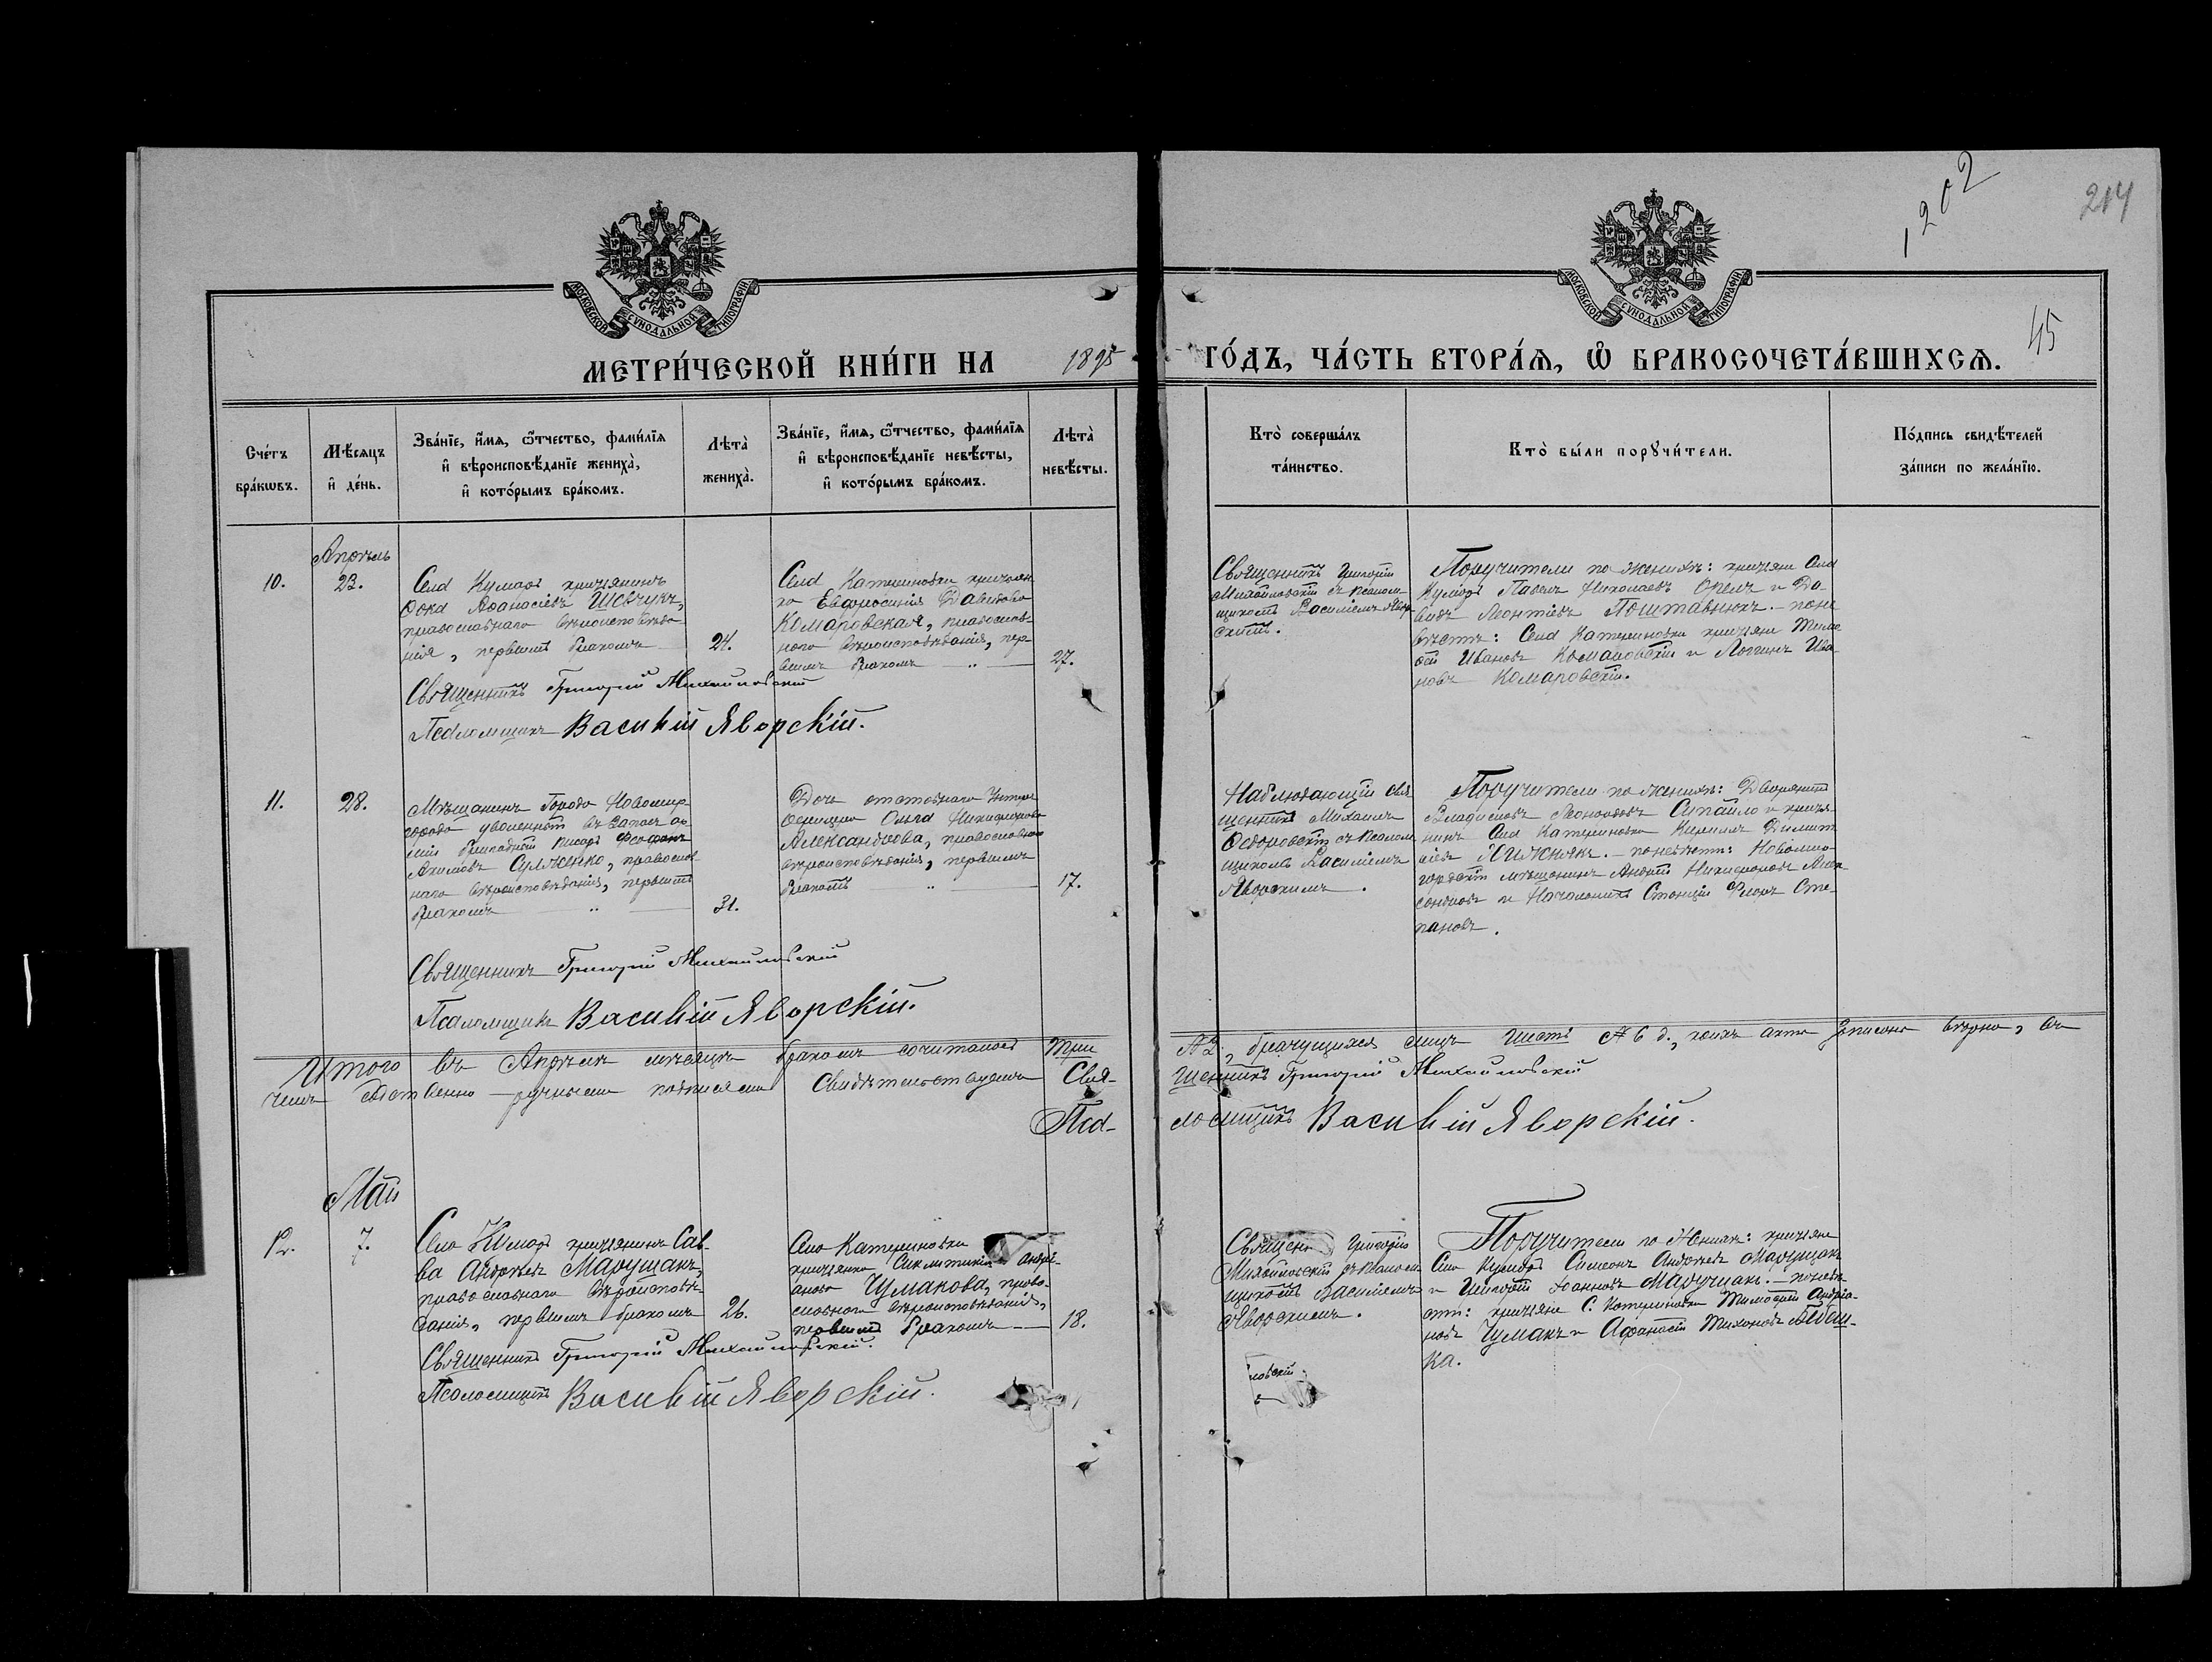 1202
214
45
МОСКОВСКОЙ СѴНОДАЛЬНОЙ ТИПОГРАФІИ
МОСКОВСКОЙ СѴНОДАЛЬНОЙ ТИПОГРАФІИ
МЕТРИ́ЧЕСКОЙ КНИ́ГИ НА 1895 ГО́ДЪ, ЧА́СТЬ ВТОРА́Я, Ѽ БРАКОСОЧЕТА́ВШИХСЯ.
Сче́тъ
бра́кѡвъ.
Мѣ́сяцъ
и҆ де́нь.
Зва́нїе, и҆́мя, ѻ҆́тчество, фами́лїя
и҆ вѣроисповѣ́данїе жениха̀,
и҆ кото́рымъ бра́комъ.
Лѣта̀
жениха̀.
Зва́нїе, и҆́мя, ѻ҆́тчество, фами́лїя
и҆ вѣроисповѣ́данїе невѣ́сты,
и҆ кото́рымъ бра́комъ.
Лѣта̀
невѣ́сты.
Кто̀ соверша́лъ
та́инство.
Кто̀ бы́ли порꙋчи́тели.
По́дпись свидѣ́телей
за́писи по жела́нїю.
Апрѣль
10.
23.
Села Кумаръ крестьянинъ
Ѳока Аѳанасіевъ Шевчукъ,
православнаго вѣроисповѣда-
нія, первымъ бракомъ
24.
Села Катериновки крестьян-
ка Евфросинія Давидова
Комаровская, православ-
наго вѣроисповѣданія, пер-
вымъ бракомъ
27.
Священникъ Григорій
Михайловскій съ псалом-
щикомъ Василіемъ Явор-
скимъ.
Поручители по женихѣ: крестьяне села
Кумаръ Павелъ Николаевъ Орелъ и Да-
видъ Леонтіевъ Поштавнюкъ. - по не-
вѣстѣ: Села Катериновки крестьяне Тимо-
ѳей Ивановъ Комаровскій и Логгинъ Ива-
новъ Комаровскій.
Священникъ Григорій Михайловскій
Псаломщикъ Василій Яворскій.
11.
28.
Мѣщанинъ Города Новомир-
города уволенный въ запасъ ар-
міи писарь
Акимовъ Сулженко, православ-
наго вѣроисповѣданія, первымъ
бракомъ
31.
Дочь отставнаго Унтеръ
Офицера Ольга Никифорова
Александрова, православнаго
вѣроисповѣданія, первымъ
бракомъ
17.
Наблюдающій свя-
щенникъ Михаилъ
съ псалом-
щикомъ Василіемъ
Яворскимъ.
Поручители по женихѣ: Дворянинъ
Владиславъ Сипайло и крестья-
нинъ села Катериновки Кириллъ Димит-
ріевъ Хижнякъ. - по невѣстѣ: Новомир-
городскій мѣщанинъ Андрей Никифоровъ Алек-
сандровъ и Начальникъ Станціи Ѳедоръ Сте-
пановъ.
Священникъ Григорій Михайловскій
Псаломщикъ Василій Яворскій.
Итого въ Апрѣлѣ мѣсяцѣ бракомъ сочиталось Три
№ 2, брачущихся лицъ шесть № 6 д., коихъ акты записаны вѣрно, въ
чемъ собственно-ручными подписями свидѣтельствуемъ Свя-
щенникъ Григорій Михайловскій
Пса-
ломщикъ Василій Яворскій.
Май
12.
7.
Села Кумаръ крестьянинъ Сав-
ва Андреевъ Марущакъ,
православнаго вѣроисповѣ-
данія, первымъ бракомъ
26.
Села Катериновки
крестьянка Синклитикія Андрі-
анова Чумакова, право-
славнаго вѣроисповѣданія,
первымъ бракомъ
18.
Священ Григорій
Михайловскій съ псалом-
щикомъ Василіемъ
Яворскимъ.
Поручители по женихѣ: крестьяне
села Кумаръ Симеонъ Андреевъ Марущакъ
и Григорій Іоанновъ Марущакъ. - по невѣ-
стѣ: крестьяне С. Катериновки Тимоѳей Андріа-
новъ Чумакъ и Афанасій Тихоновъ
ка.
Священникъ Григорій Михайловскій.
Псаломщикъ Василій Яворскій.
ловскій